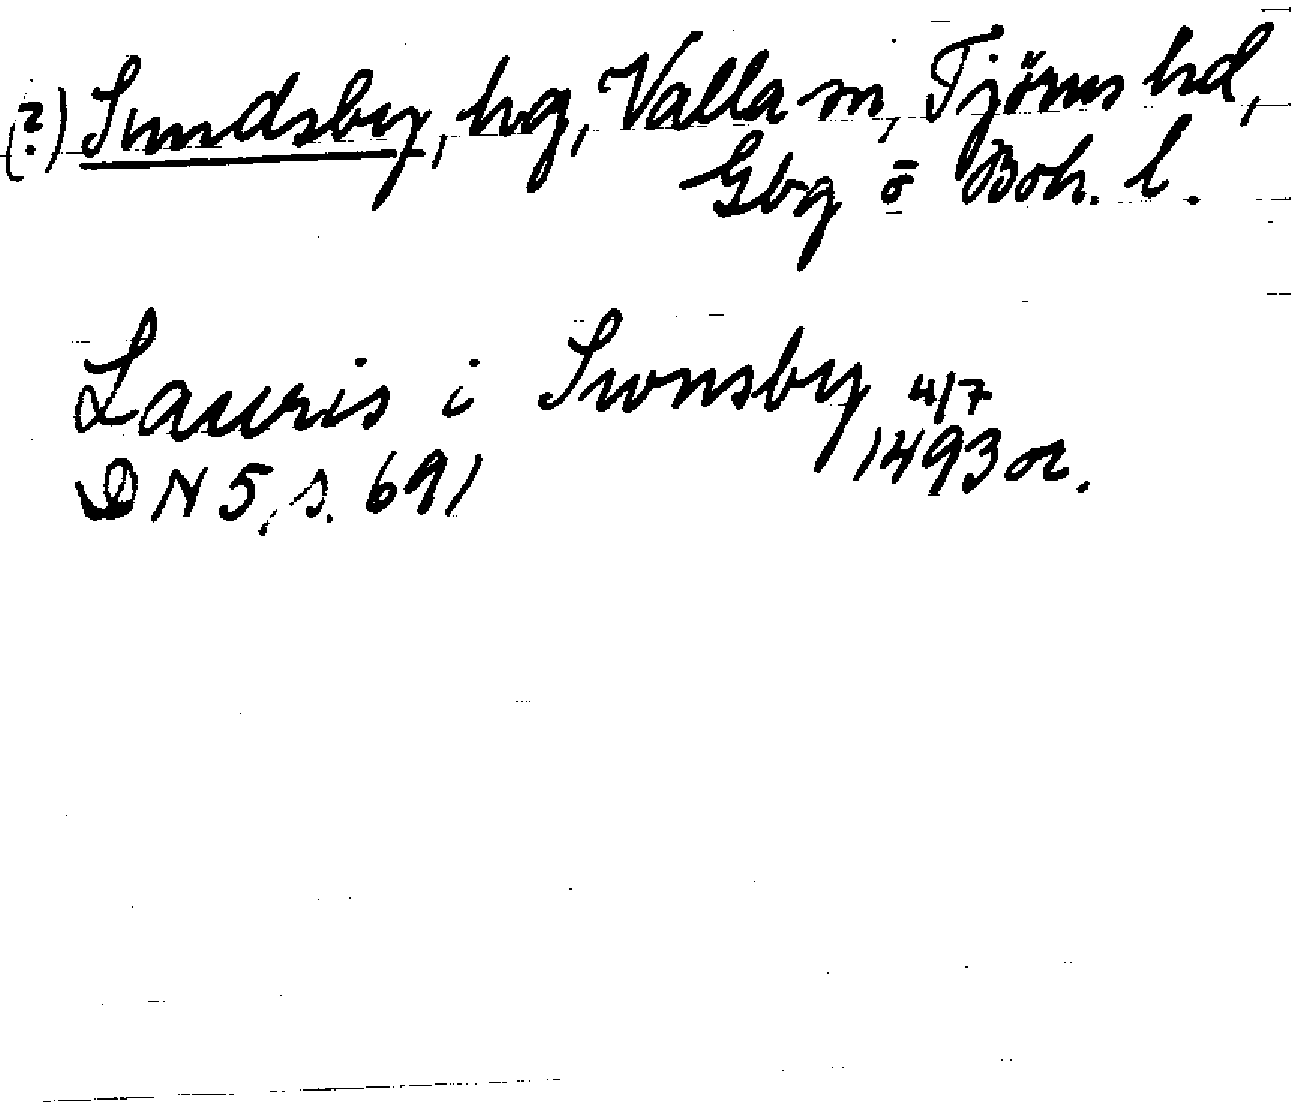 (?) Sundsby, hg, Valla sn, Tjörns hd,
Gbg o Boh. l.
Lauris i Swnsby 4/7
1493 or.
DN 5, s. 691